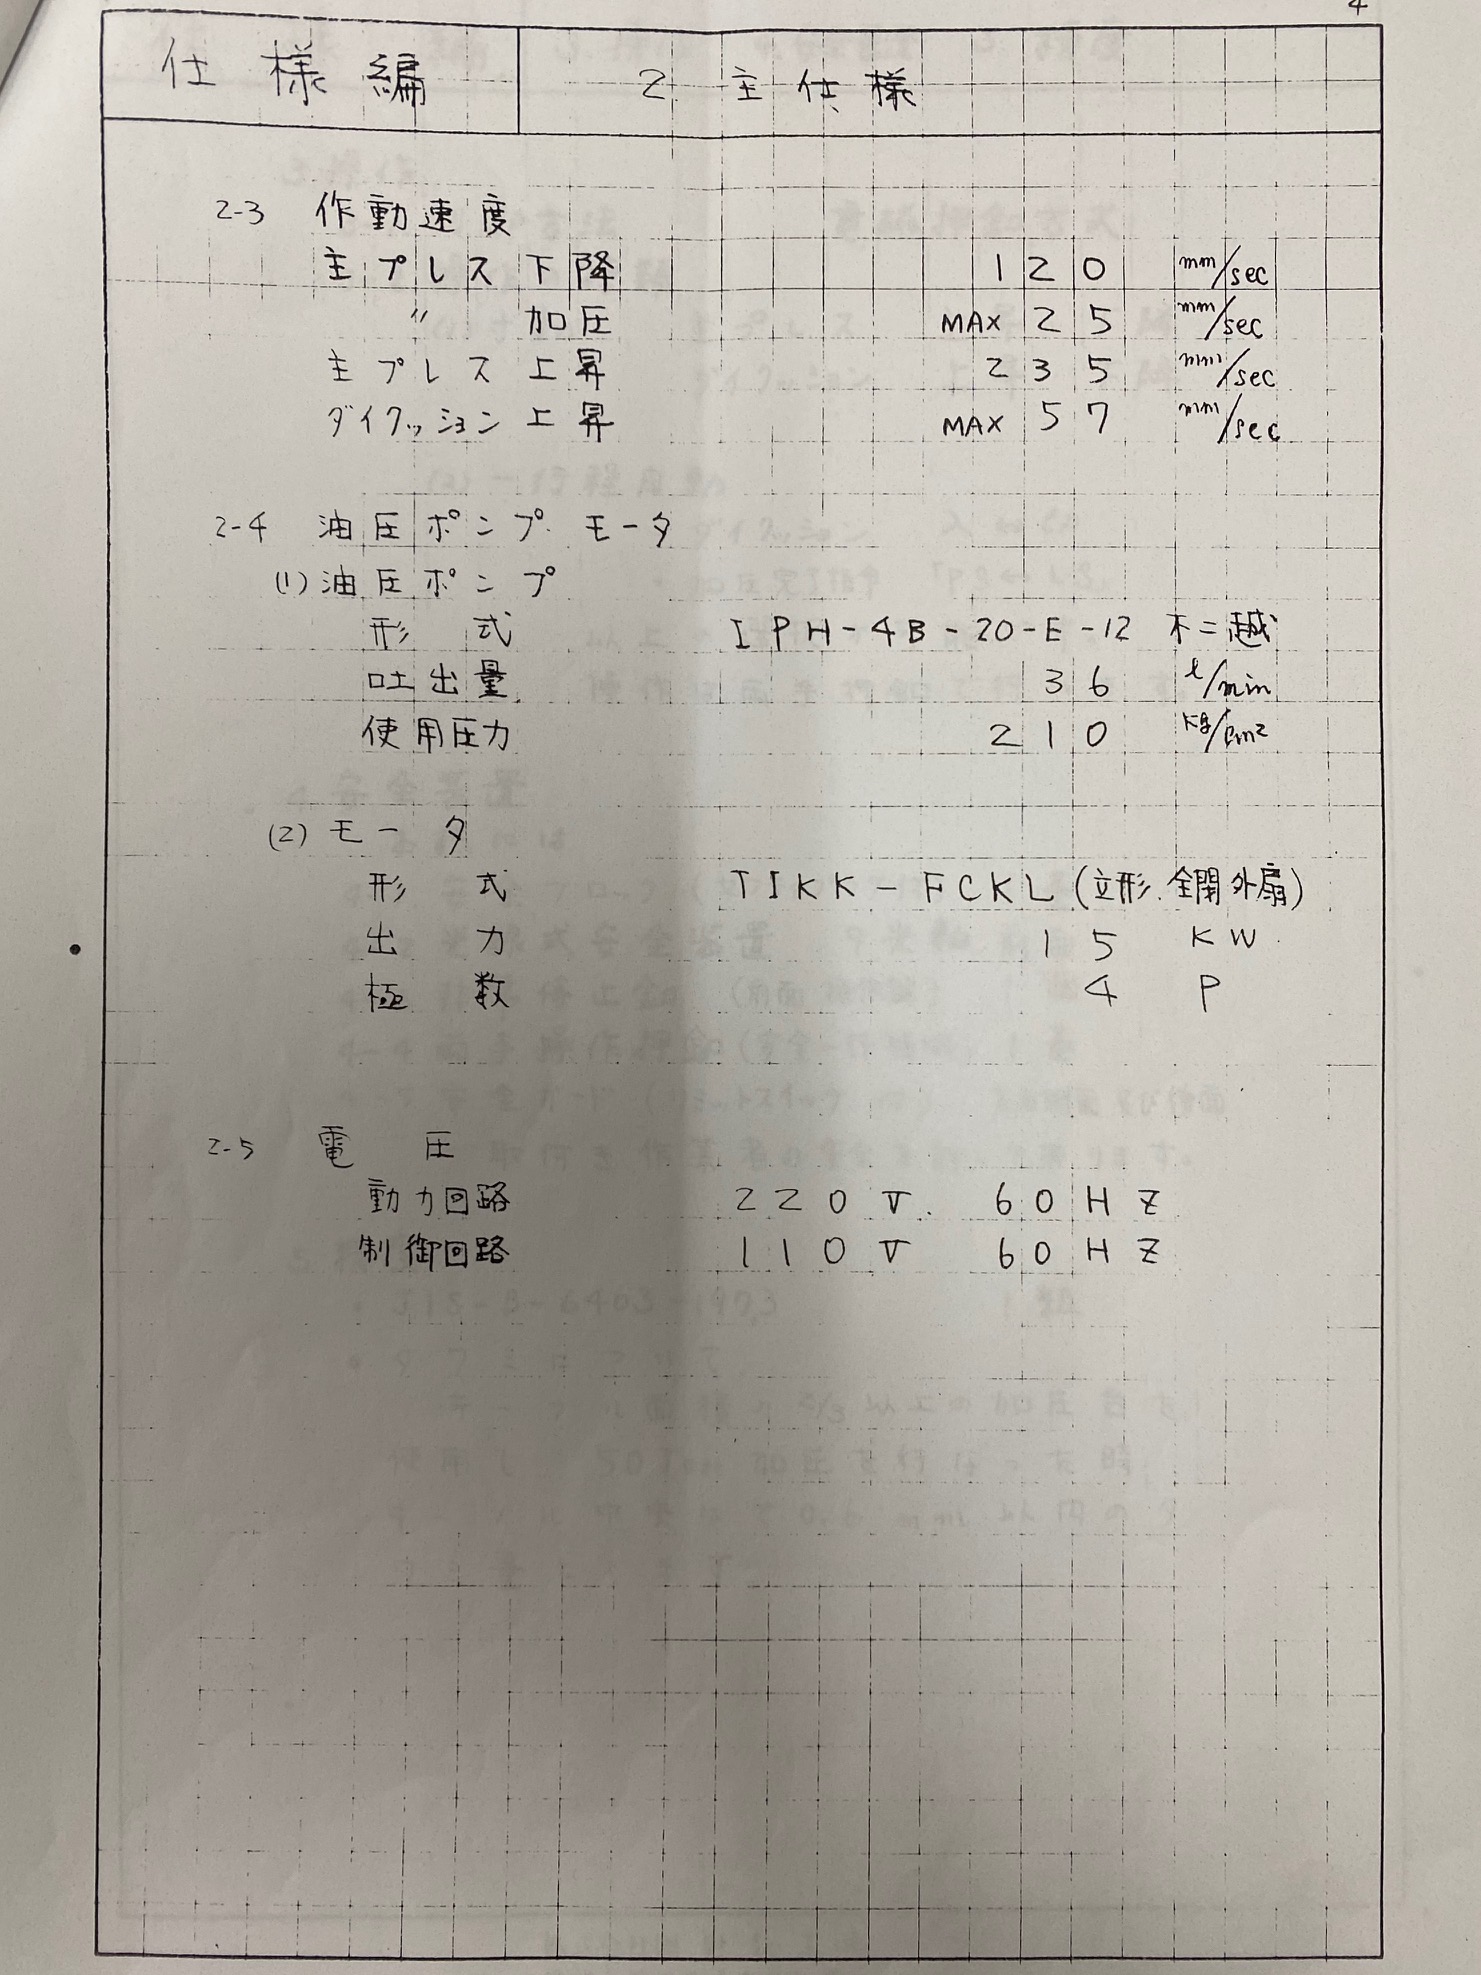 4
仕様編 2 主仕様
2-3 作動速度
主プレス下降 120 mm/sec
〃 加圧 MAX 25 mm/sec
主プレス上昇 235 mm/sec
ダイクッション上昇 MAX 57 mm/sec
2-4 油圧ポンプ モータ
(1) 油圧ポンプ
形式 IPH-4B-20-E-12 不二越
吐出量 36 ℓ/min
使用圧力 210 kg/cm2
(2) モータ
形式 TIKK-FCKL (立形、全閉外扇)
出力 15 KW
極数 4 P
2-5 電圧
動力回路 220V. 60HZ
制御回路 110V 60HZ